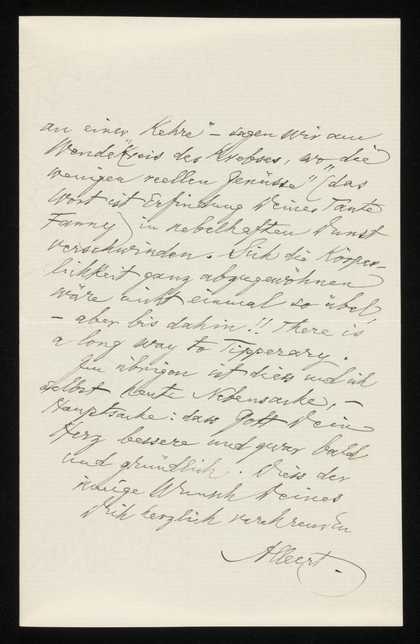 an einer "Kehre" – sagen wir am
Wendekreis des Krebses, wo die
wenigen reellen Genüsse" (das
Wort ist Erfindung Deiner Tante
Fanny) in nebelhaften Dunst
verschwinden. Sich die Körper-
lichkeit ganz abzugewöhnen
wäre nicht einmal so übel,
– aber bis dahin!! There is
a long way to Tipperary.
Im übrigen ist dies und ich
selbst heute Nebensache, –
Hauptsache: dass Gott Dein
Herz bessere und zwar bald
und gründlich. Dies der
innige Wunsch Deines
Dich herzlich verehrenden
Albert.